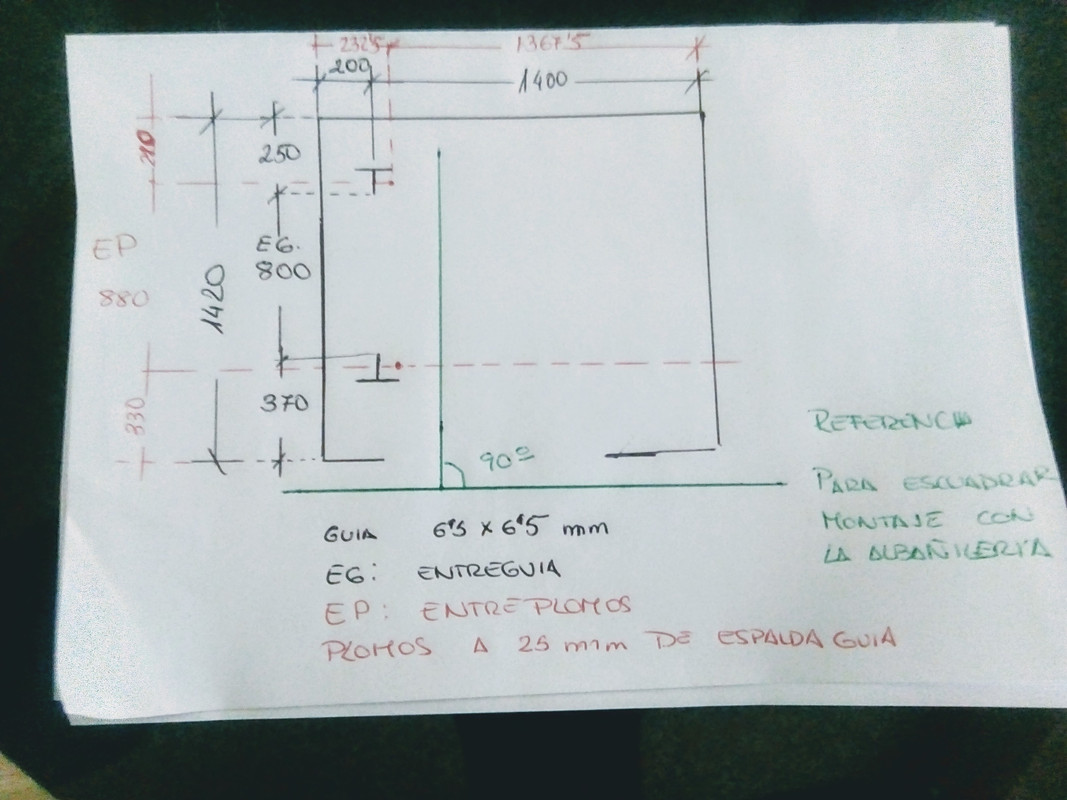 232'5 1367'5
200 1400
210
250
EP
880
EG.
800
1420
330
370
90º
REFERENCIA
PARA ESCUADRAR
MONTAJE CON
LA ALBAÑILERIA
GUIA 6'5 x 6'5 mm
EG: ENTREGUIA
EP: ENTREPLOMOS
PLOMOS A 25 mm DE ESPALDA GUIA